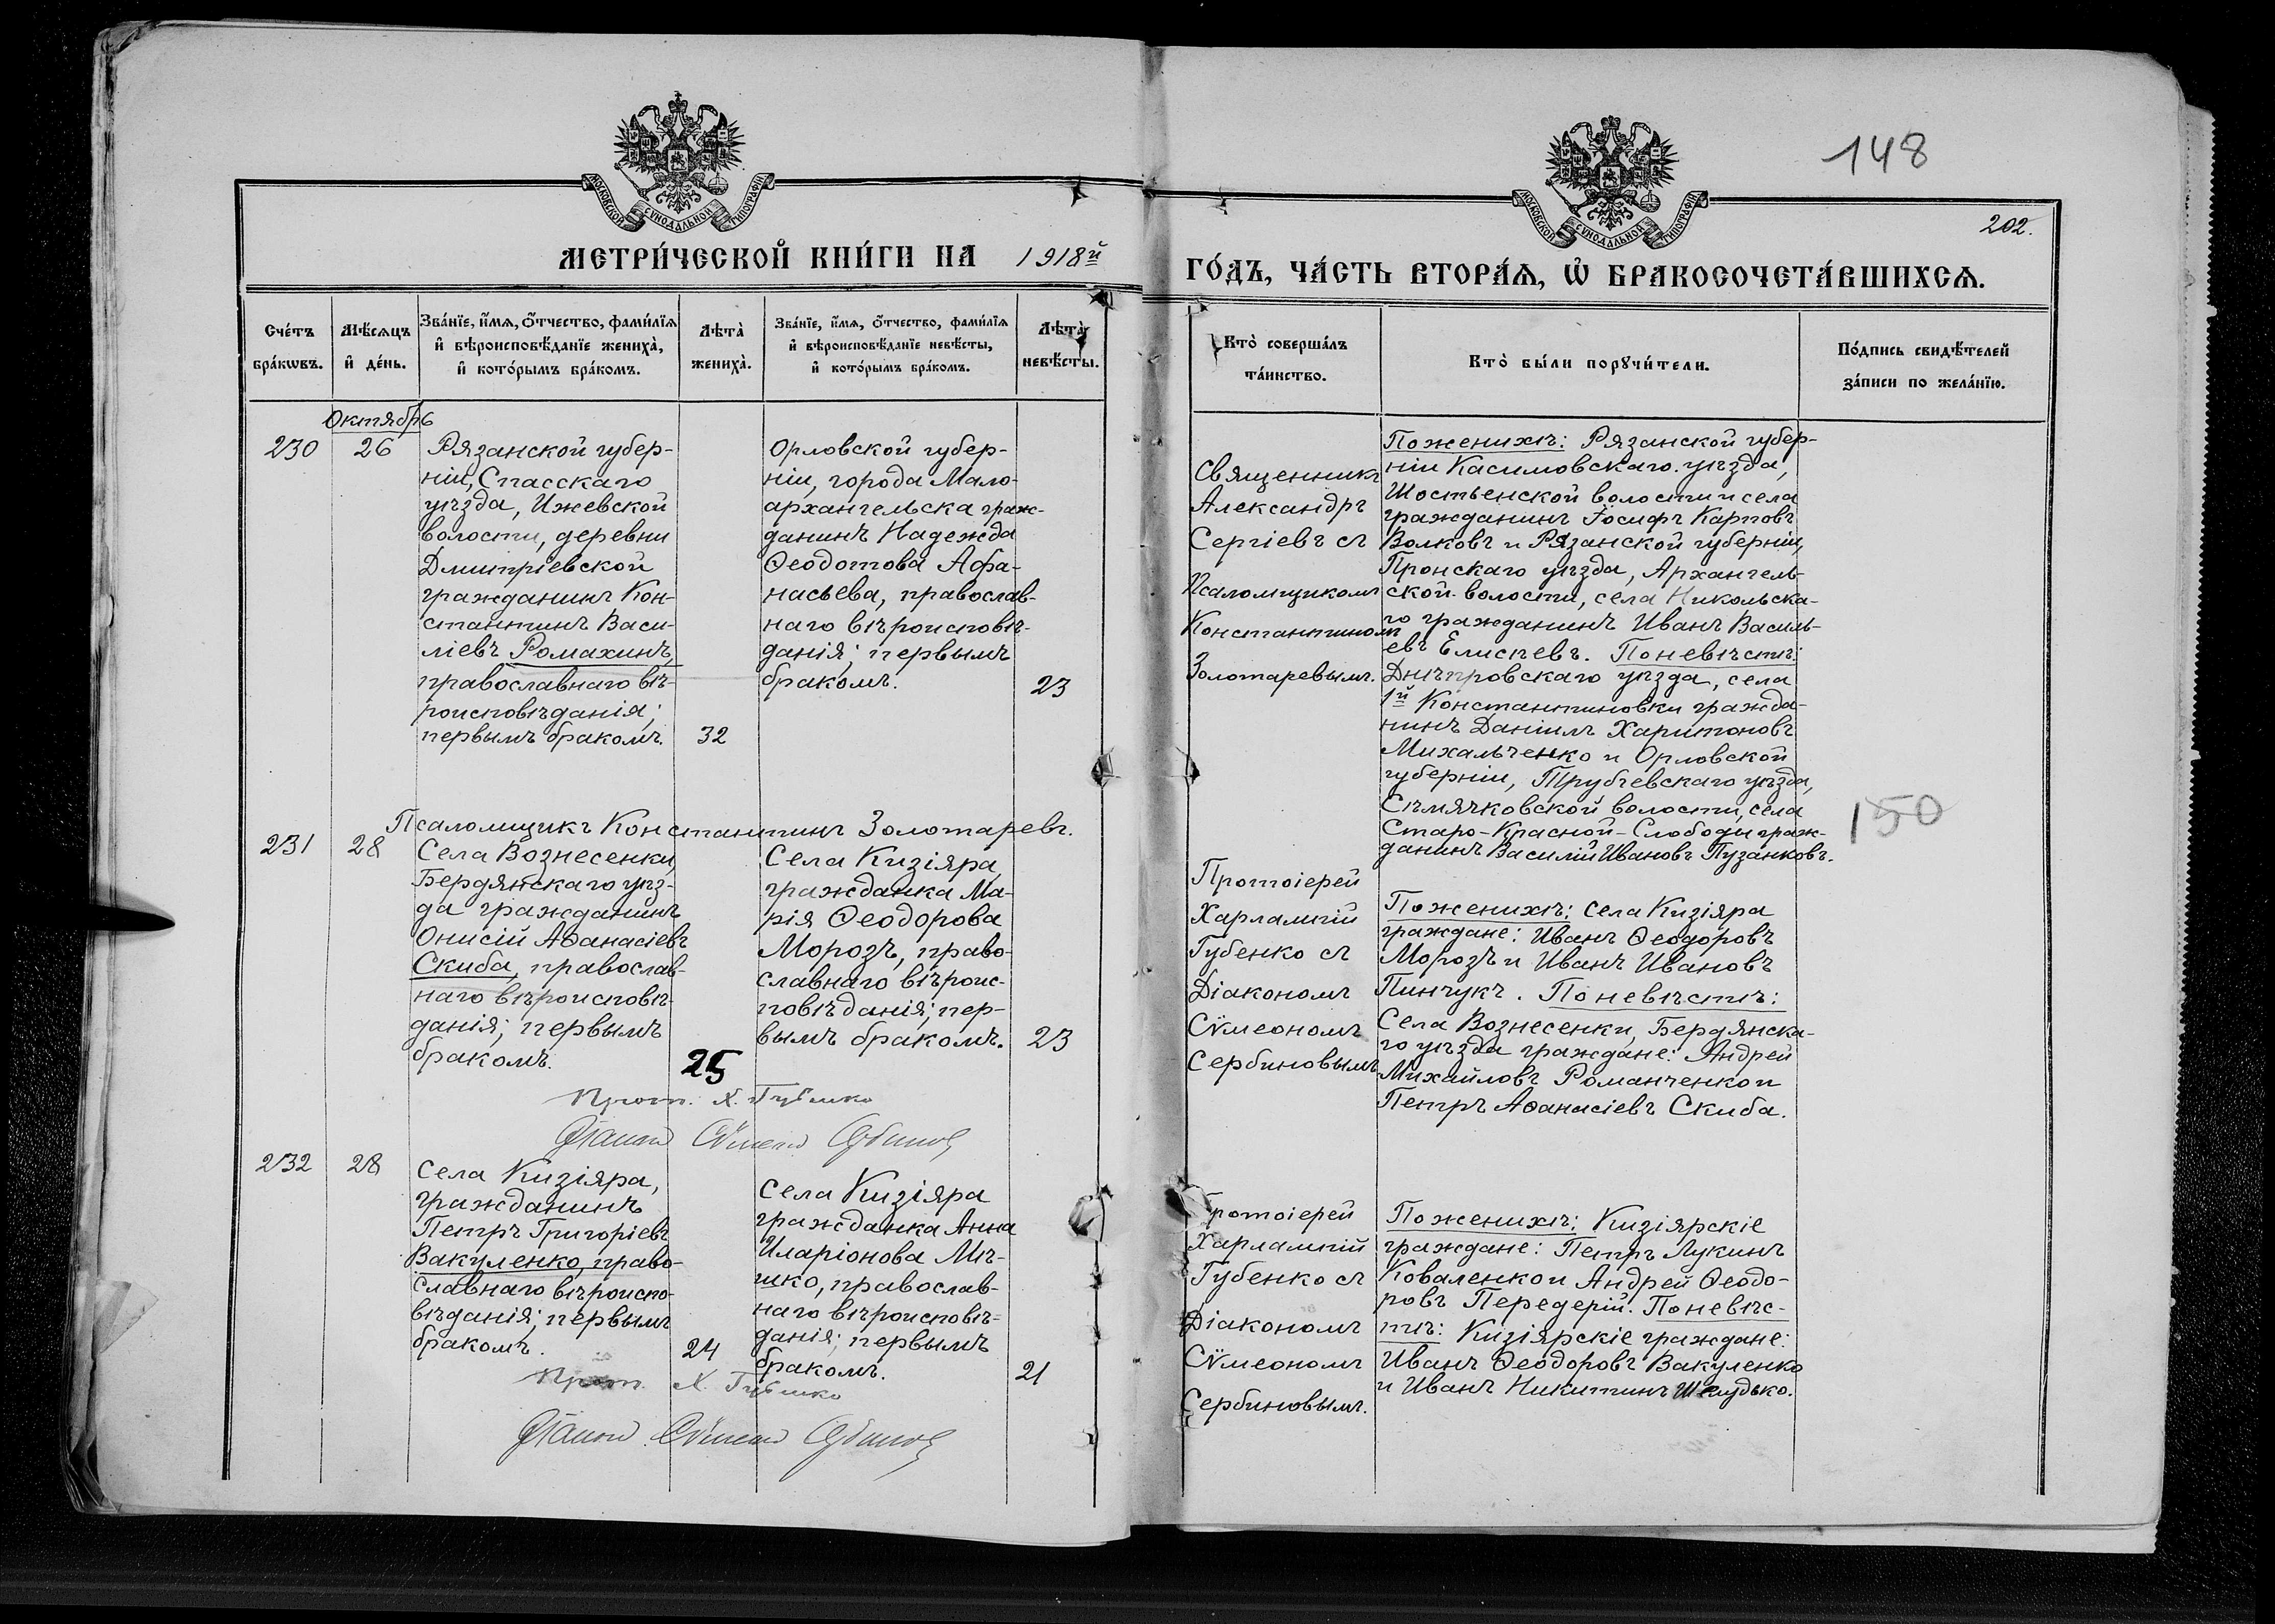 148
202.
МОСКОВСКОЙ СУНОДАЛЬНОЙ ТИПОГРАФІИ
МОСКОВСКОЙ СУНОДАЛЬНОЙ ТИПОГРАФІИ
МЕТРИ́ЧЕСКОЙ КНИ́ГИ НА 1918й
ГО́ДЪ, ЧА́СТЬ ВТОРА́Ѧ, Ѡ҆ БРАКОСОЧЕТА́ВШИХСѦ.
Сче́тъ бра́кѡвъ.
Мѣ́сѧцъ и҆ де́нь.
Зва́нїе, и҆́мѧ, ѻ҆́тчество, фами́лїѧ и҆ вѣроисповѣ́данїе жениха̀, и҆ кото́рымъ бра́комъ.
Лѣта̀ жениха̀.
Зва́нїе, и҆́мѧ, ѻ҆́тчество, фами́лїѧ и҆ вѣроисповѣ́данїе невѣ́сты, и҆ кото́рымъ бра́комъ.
Лѣта̀ невѣ́сты.
Кто̀ соверша́лъ та́инство.
Кто̀ бы́ли порꙋчи́тели.
По́дпись свидѣ́телей за́писи по жела́нїю.
Октябрь
230
26
Рязанской губер-
ніи, Спасскаго
уѣзда, Ижевской
волости, деревни
Дмитріевской
гражданинъ Кон-
стантинъ Васи-
ліевъ Ромахинъ,
православнаго вѣ-
роисповѣданія;
первымъ бракомъ.
32
Орловской губер-
ніи, города Мало-
архангельска граж-
данинъ Надежда
Ѳеодотова Афа-
насьева, православ-
наго вѣроисповѣ-
данія; первымъ
бракомъ.
23
Священникъ
Александръ
Сергіевъ съ
Псаломщикомъ
Константиномъ
Золотаревымъ.
По женихѣ: Рязанской губер-
ніи Касимовскаго уѣзда,
Шостьенской волости и села
гражданинъ Іосифъ Карповъ
Волковъ и Рязанской губерніи,
Пронскаго уѣзда, Архангель-
ской волости, села Никольска-
го гражданинъ Иванъ Василь-
евъ Елисѣевъ. По невѣстѣ:
Днѣпровскаго уѣзда, села
1й Константиновки гражда-
нинъ Даніилъ Харитоновъ
Михальченко и Орловской
губерніи, Трубчевскаго уѣзда,
Сѣмячковской волости, села
Старо-Красной-Слободы граж-
данинъ Василій Ивановъ Пузанковъ.
150
Псаломщикъ Константинъ Золотаревъ.
231
28
Села Вознесенки,
Бердянскаго уѣз-
да гражданинъ
Онисій Аѳанасіевъ
Скиба, православ-
наго вѣроисповѣ-
данія; первымъ
бракомъ.
25
Села Кизіяра
гражданка Ма-
рія Ѳеодорова
Морозъ, право-
славнаго вѣроис-
повѣданія; пер-
вымъ бракомъ.
23
Протоіерей
Харлампій
Губенко съ
Діакономъ
Сѵмеономъ
Сербиновымъ
По женихѣ: Села Кизіяра
граждане: Иванъ Ѳеодоровъ
Морозъ и Иванъ Ивановъ
Пинчукъ. По невѣстѣ:
Села Вознесенки, Бердянска-
го уѣзда граждане: Андрей
Михайловъ Романченко и
Петръ Аѳанасіевъ Скиба.
Прот. Х. Губенко
Діаконъ Сѵмеонъ Сербиновъ
232
28
Села Кизіяра,
гражданинъ
Петръ Григоріевъ
Вакуленко, право-
славнаго вѣроиспо-
вѣданія; первымъ
бракомъ.
24
Села Кизіяра
гражданка Анна
Иларіонова Мѣ-
шко, православ-
наго вѣроисповѣ-
данія; первымъ
бракомъ.
21
Протоіерей
Харлампій
Губенко съ
Діакономъ
Сѵмеономъ
Сербиновымъ.
По женихѣ: Кизіярскіе
граждане: Петръ Лукинъ
Коваленко и Андрей Ѳеодо-
ровъ Передерій. По невѣс-
тѣ: Кизіярскіе граждане:
Иванъ Ѳеодоровъ Вакуленко
и Иванъ Никитинъ Шелудько.
Прот. Х. Губенко
Діаконъ Сѵмеонъ Сербиновъ